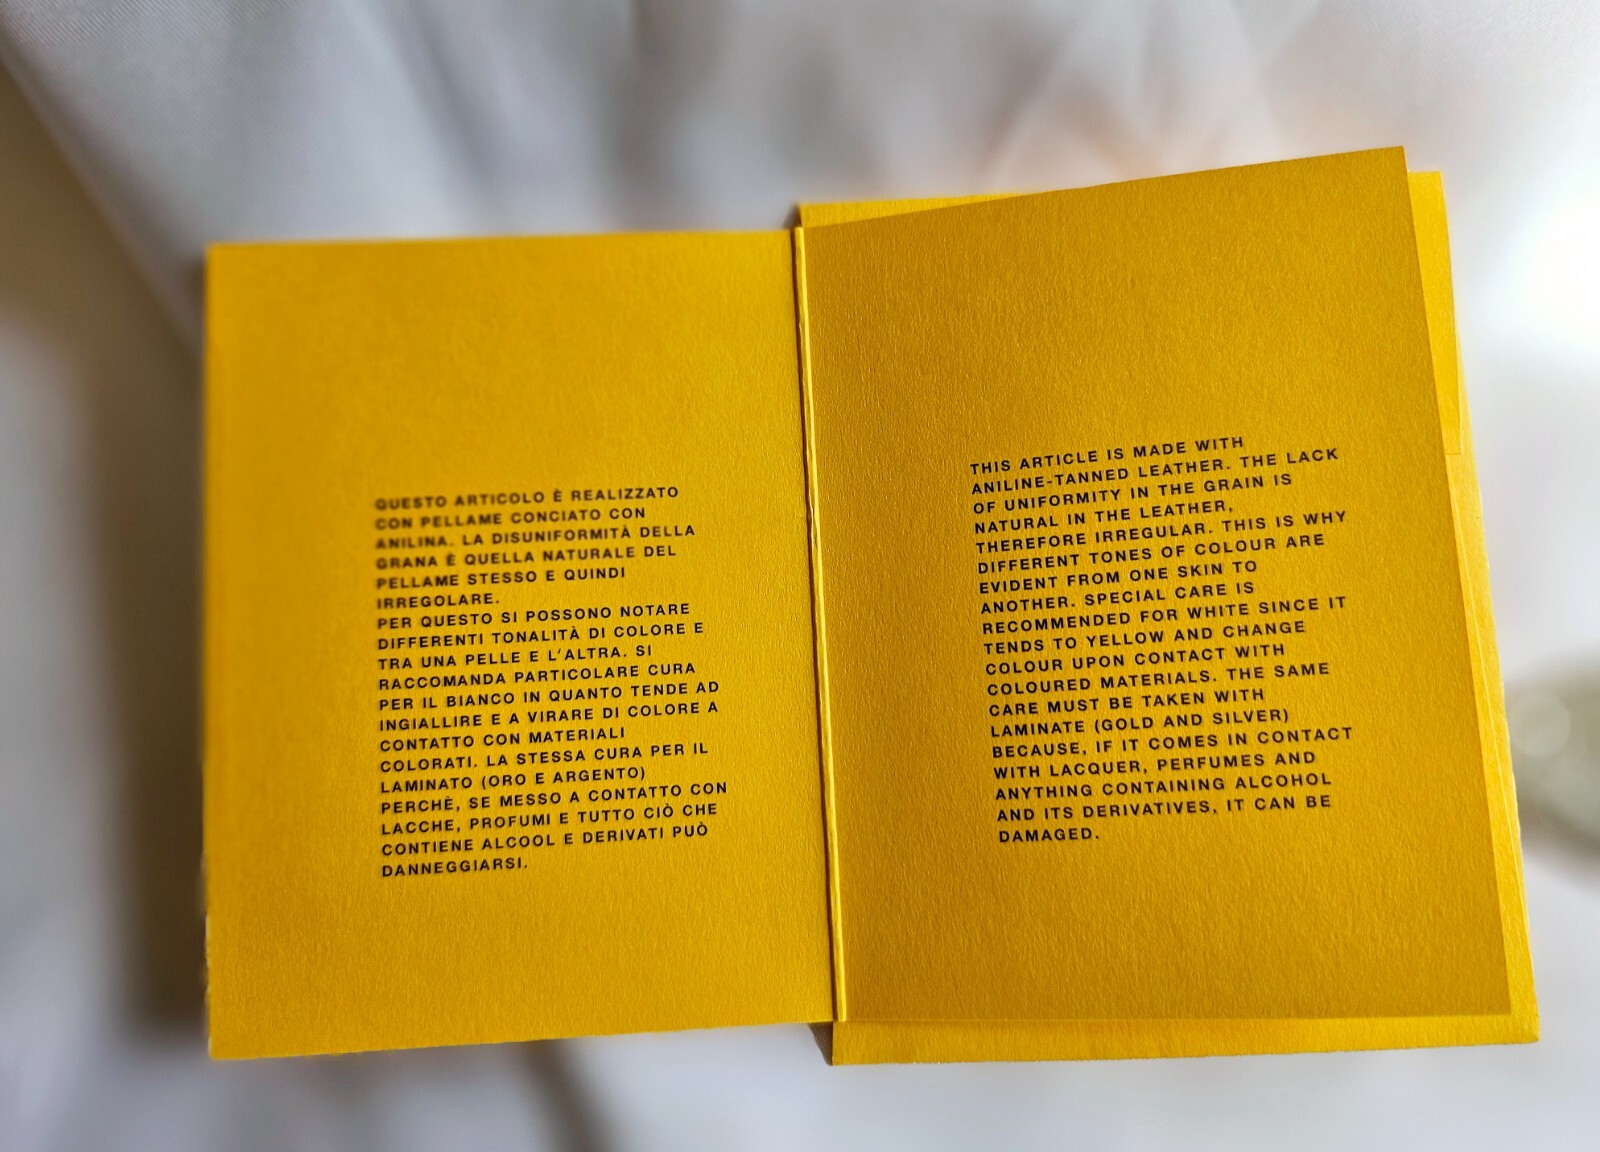 QUESTO ARTICOLO È REALIZZATO
CON PELLAME CONCIATO CON
ANILINA. LA DISUNIFORMITÀ DELLA
GRANA È QUELLA NATURALE DEL
PELLAME STESSO E QUINDI
IRREGOLARE.
PER QUESTO SI POSSONO NOTARE
DIFFERENTI TONALITÀ DI COLORE E
TRA UNA PELLE E L'ALTRA. SI
RACCOMANDA PARTICOLARE CURA
PER IL BIANCO IN QUANTO TENDE AD
INGIALLIRE E A VIRARE DI COLORE A
CONTATTO CON MATERIALI
COLORATI. LA STESSA CURA PER IL
LAMINATO (ORO E ARGENTO)
PERCHÈ, SE MESSO A CONTATTO CON
LACCHE, PROFUMI E TUTTO CIÒ CHE
CONTIENE ALCOOL E DERIVATI PUÒ
DANNEGGIARSI.
THIS ARTICLE IS MADE WITH
ANILINE-TANNED LEATHER. THE LACK
OF UNIFORMITY IN THE GRAIN IS
NATURAL IN THE LEATHER,
THEREFORE IRREGULAR. THIS IS WHY
DIFFERENT TONES OF COLOUR ARE
EVIDENT FROM ONE SKIN TO
ANOTHER. SPECIAL CARE IS
RECOMMENDED FOR WHITE SINCE IT
TENDS TO YELLOW AND CHANGE
COLOUR UPON CONTACT WITH
COLOURED MATERIALS. THE SAME
CARE MUST BE TAKEN WITH
LAMINATE (GOLD AND SILVER)
BECAUSE, IF IT COMES IN CONTACT
WITH LACQUER, PERFUMES AND
ANYTHING CONTAINING ALCOHOL
AND ITS DERIVATIVES, IT CAN BE
DAMAGED.